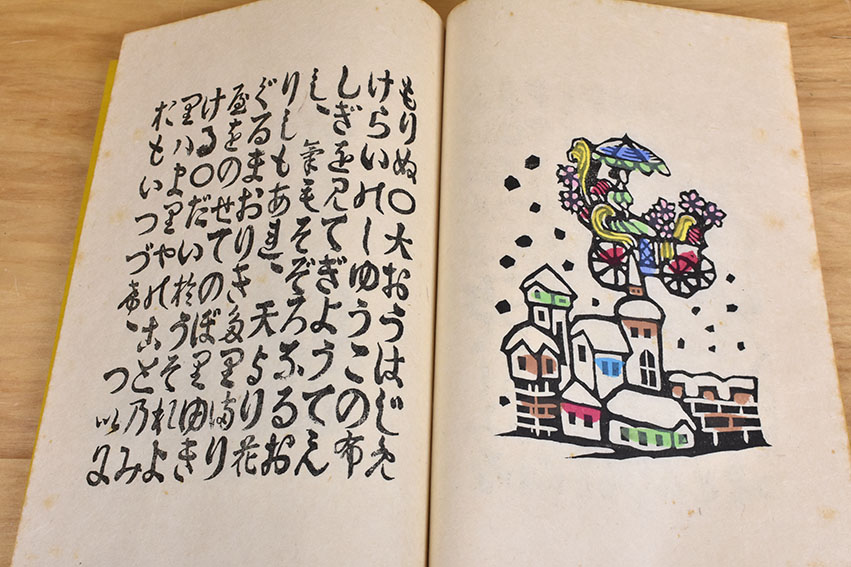 もりぬ〇大おうはじめ
けらいのしゆうこの布
しぎを見てぎようてん
し、氣もそぞろなるお
りしもあれ、天より花
ぐるまおりき多里満
屋をのせてのぼ里ゆき
ける〇だい於うそれよ
里ハま里やのこと乃み
おもいつづけ、つ以に